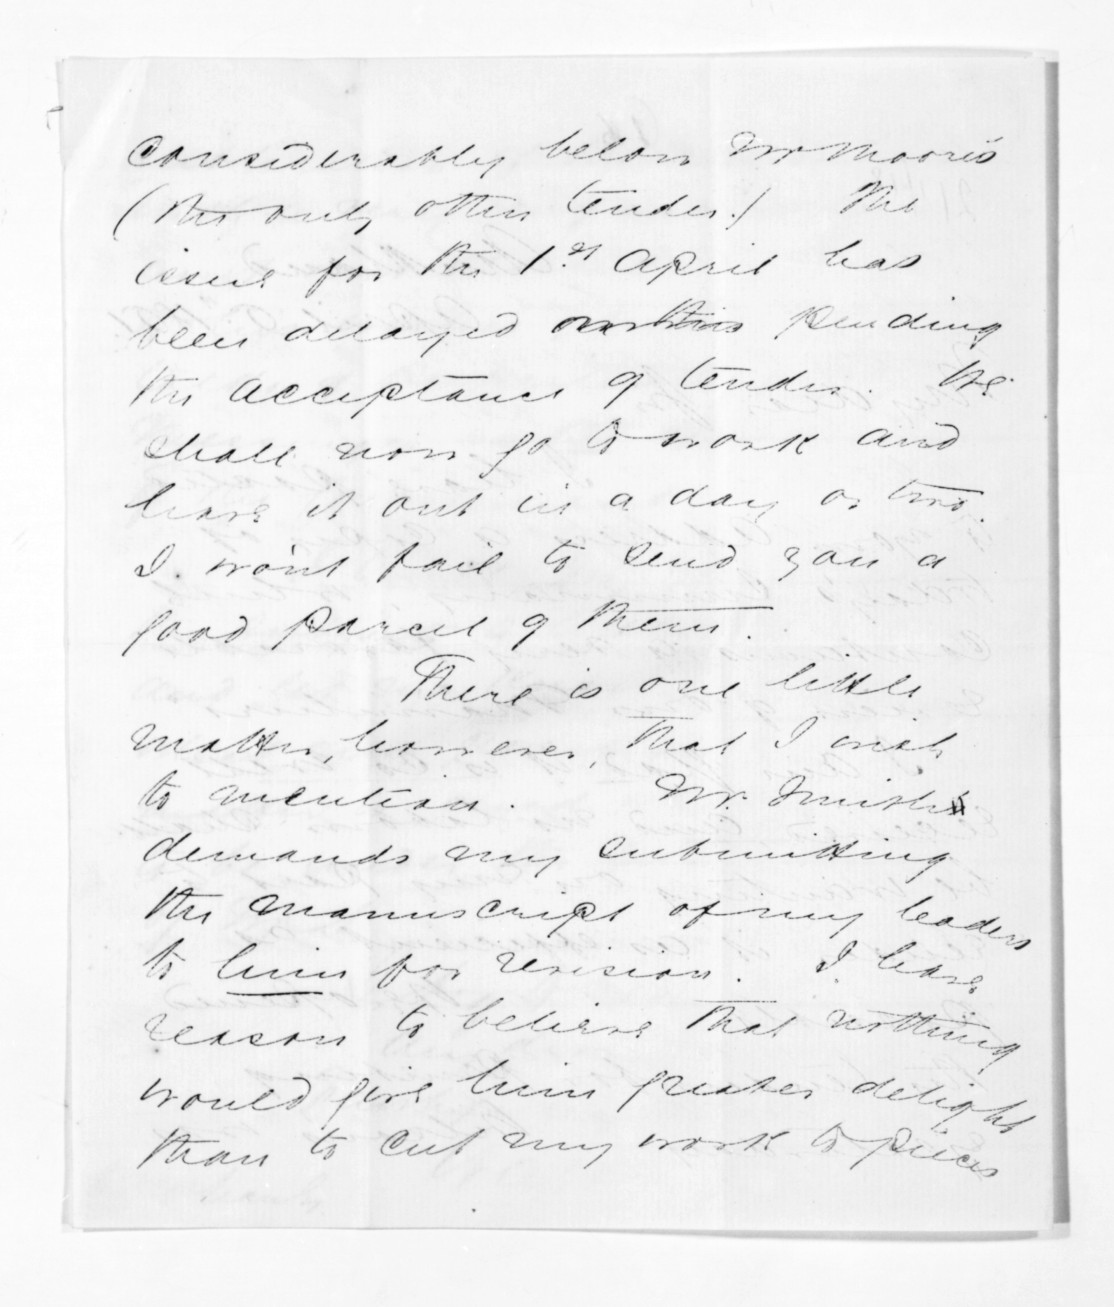 considerably below Mr Moore's
(the only other tender.) The
issue for the 1st April has
been delayed pending
the acceptance of tender. We
shall now go to work and
have it out in a day or two.
I won't fail to send you a
good parcel of them.
There is one little
matter, however, that I wish
to mention. Mr Smith
demands my submitting
the manuscript of my leaders
to him for revision. I have
reason to believe that nothing
would give him greater delight
than to cut my work to pieces